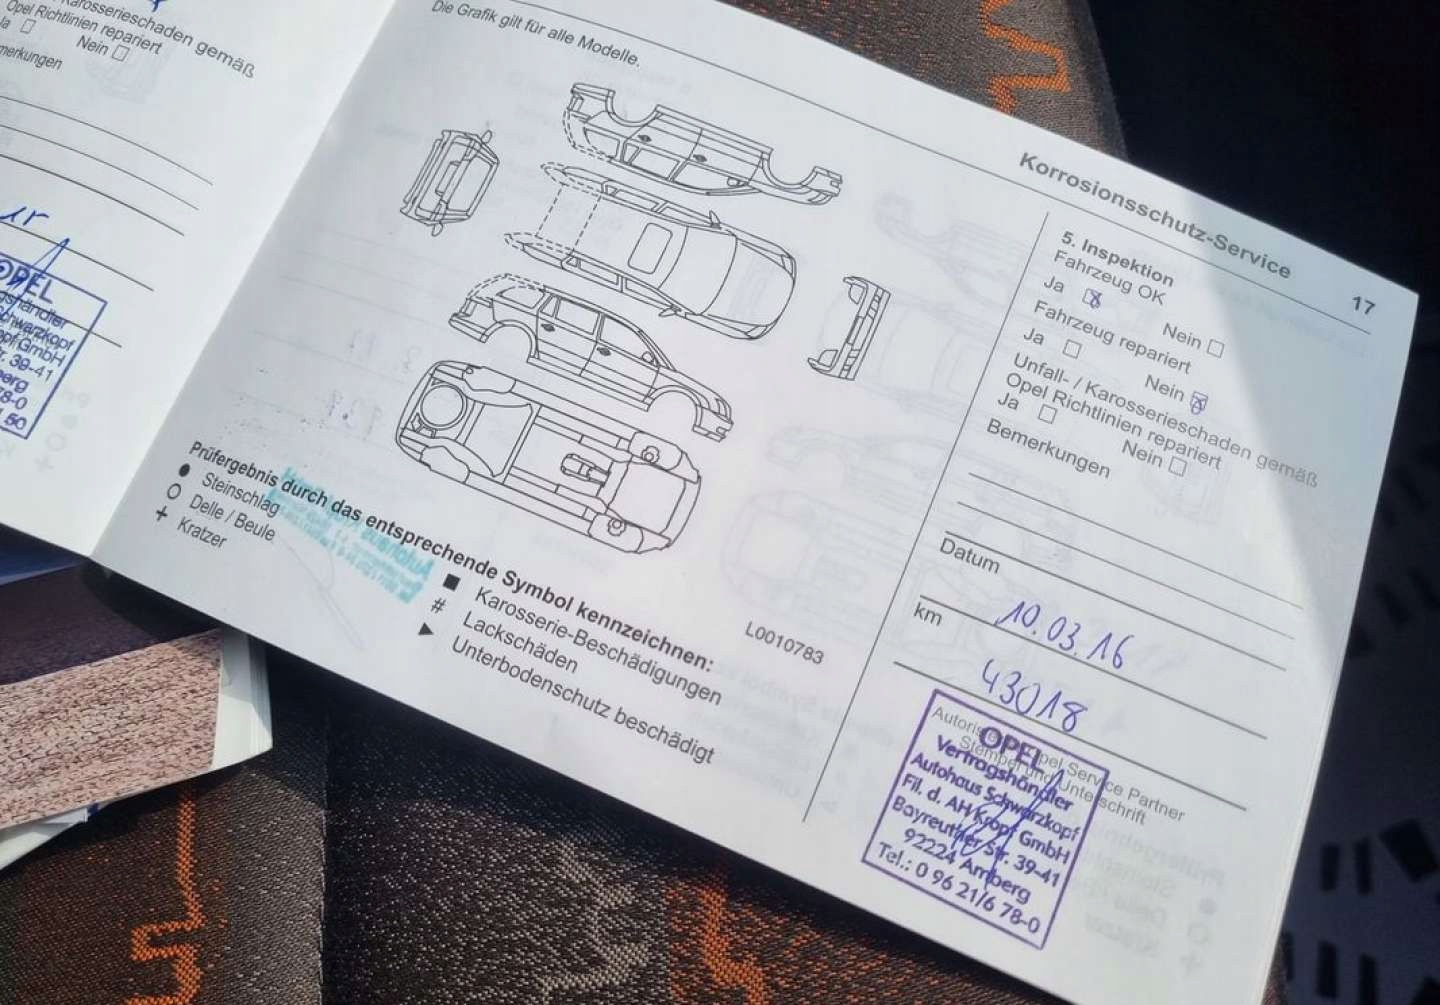 Karosserieschaden gemäß
Opel Richtlinien repariert
Ja ☐ Nein ☐
merkungen
OPEL
shändler
chwarzkopf
pf GmbH
r. 39-41
berg
78-0
50
Die Grafik gilt für alle Modelle.
Korrosionsschutz-Service
17
5. Inspektion
Fahrzeug OK
Ja ☒ Nein ☐
Fahrzeug repariert
Ja ☐ Nein ☒
Unfall- / Karosserieschaden gemäß
Opel Richtlinien repariert
Ja ☐ Nein ☐
Bemerkungen
Datum
10.03.16
km
43018
Autoris Opel Service Partner
Stempel und Unterschrift
OPEL
Vertragshändler
Autohaus Schwarzkopf
Fil. d. AH Kropf GmbH
Bayreuther Str. 39-41
92224 Amberg
Tel.: 0 96 21/6 78-0
L0010783
Prüfergebnis durch das entsprechende Symbol kennzeichnen:
● Steinschlag
○ Delle / Beule
+ Kratzer
■ Karosserie-Beschädigungen
# Lackschäden
▶ Unterbodenschutz beschädigt